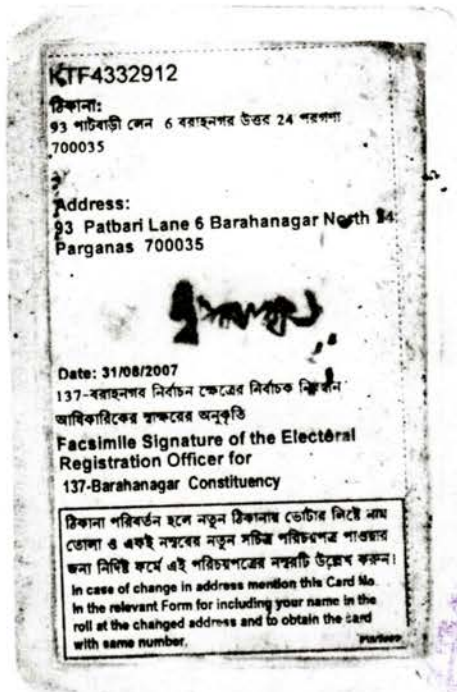 KTF4332912
ঠিকানা:
93 পাটবাড়ী লেন 6 বরাহনগর উত্তর 24 পরগণা
700035
Address:
93 Patbari Lane 6 Barahanagar North 24
Parganas 700035
Date: 31/08/2007
137-বরাহনগর নির্বাচন ক্ষেত্রের নির্বাচক নিবন্ধন
আধিকারিকের স্বাক্ষরের অনুকৃতি
Facsimile Signature of the Electoral
Registration Officer for
137-Barahanagar Constituency
ঠিকানা পরিবর্তন হলে নতুন ঠিকানায় ভোটার লিষ্টে নাম
তোলা ও একই নম্বরের নতুন সচিত্র পরিচয়পত্র পাওয়ার
জন্য নির্দিষ্ট ফর্মে এই পরিচয়পত্রের নম্বরটি উল্লেখ করুন।
In case of change in address mention this Card No.
In the relevant Form for including your name in the
roll at the changed address and to obtain the card
with same number.